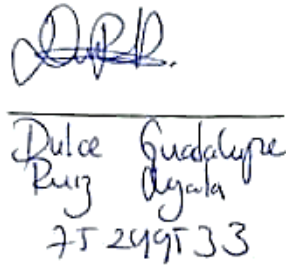 D.R.R.
Dulce Guadalupe
Ruiz Ayala
75249533